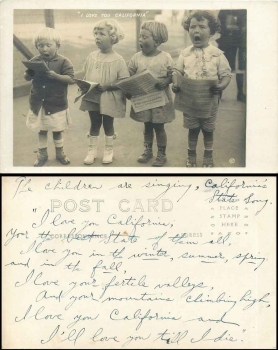 "I LOVE YOU CALIFORNIA"
The children are singing, California's
State Song.
POST CARD
PLACE
STAMP
HERE
"I love you California,
Your the best State of them all,
I love you in the winter, summer, spring
and in the fall,
I love your fertile valleys,
And your mountains climbing high,
I love you California and
I'll love you till I die".